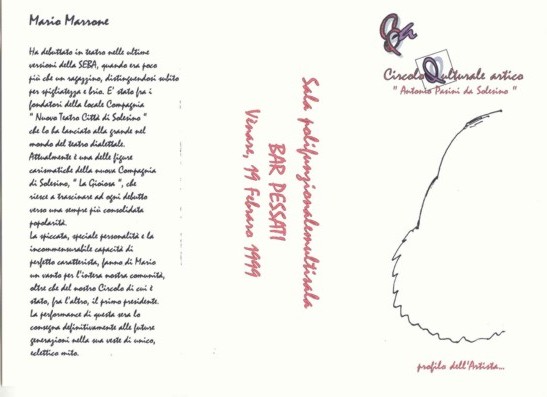 Mario Marrone
Ha debuttato in teatro nelle ultime
versioni della SEBA, quando era poco
più che un ragazzino, distinguendosi subito
per spigliatezza e brio. E' stato fra i
fondatori della locale Compagnia
" Nuovo Teatro Città di Solesino "
che lo ha lanciato alla grande nel
mondo del teatro dialettale.
Attualmente è una delle figure
carismatiche della nuova Compagnia
di Solesino, " La Gioiosa ", che
riesce a trascinare ad ogni debutto
verso una sempre più consolidata
popolarità.
La spiccata, speciale personalità e la
incommensurabile capacità di
perfetto caratterista, fanno di Mario
un vanto per l'intera nostra comunità,
oltre che del nostro Circolo di cui è
stato, fra l'altro, il primo presidente.
La performance di questa sera lo
consegna definitivamente alle future
generazioni nella sua veste di unico,
eclettico mito.
Sala polifunzionalemultisala
BAR PESSATI
Vènare, 19 Febraro 1999
Circolo Qulturale artico
" Antonio Pasini da Solesino "
profilo dell'Artista...